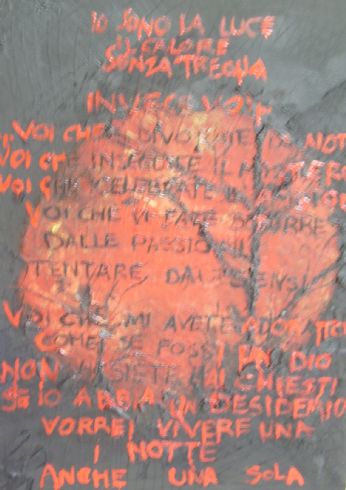 IO SONO LA LUCE
IL CALORE
SENZA TREGUA
INVECE VOI
VOI CHE DI NOT
VOI CHE INSEGUITE IL MISTERO
VOI CHE CELEBRATE
VOI CHE VI FATE
DALLE PASSIONI
TENTARE DAI SENSI
VOI CHE MI AVETE ADORATO
COME SE FOSSI UN DIO
NON VI SIETE MAI CHIESTI
SE IO ABBIA UN DESIDERIO
VORREI VIVERE UNA
NOTTE
ANCHE UNA SOLA